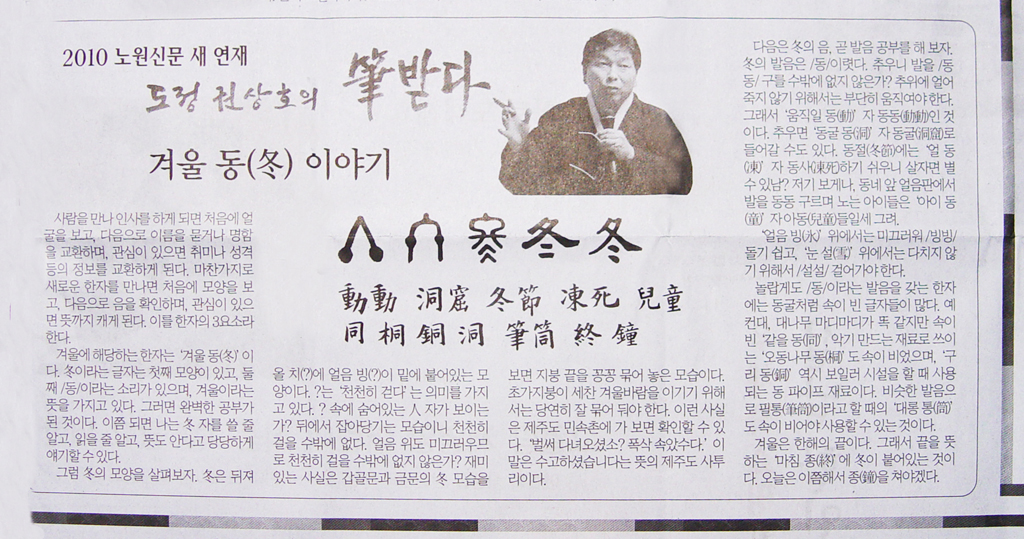 2010 노원신문 새 연재
도정 권상호의 筆받다
겨울 동(冬) 이야기
사람을 만나 인사를 하게 되면 처음에 얼
굴을 보고, 다음으로 이름을 묻거나 명함
을 교환하며, 관심이 있으면 취미나 성격
등의 정보를 교환하게 된다. 마찬가지로
새로운 한자를 만나면 처음에 모양을 보
고, 다음으로 음을 확인하며, 관심이 있으
면 뜻까지 캐게 된다. 이를 한자의 3요소라
한다.
겨울에 해당하는 한자는 '겨울 동(冬)' 이
다. 冬이라는 글자는 첫째 모양이 있고, 둘
째 /동/이라는 소리가 있으며, 겨울이라는
뜻을 가지고 있다. 그러면 완벽한 공부가
된 것이다. 이쯤 되면 나는 冬 자를 쓸 줄
알고, 읽을 줄 알고, 뜻도 안다고 당당하게
얘기할 수 있다.
그럼 冬의 모양을 살펴보자. 冬은 뒤져
冬 冬
動動 洞窟 冬節 凍死 兒童
同 桐 銅 洞 筆筒 終 鐘
올 치(?)에 얼음 빙(?)이 밑에 붙어있는 모
양이다. ?는 '천천히 걷다'는 의미를 가지
고 있다. ? 속에 숨어있는 人 자가 보이는
가? 뒤에서 잡아당기는 모습이니 천천히
걸을 수밖에 없다. 얼음 위도 미끄러우므
로 천천히 걸을 수밖에 없지 않은가? 재미
있는 사실은 갑골문과 금문의 冬 모습을
보면 지붕 끝을 꽁꽁 묶어 놓은 모습이다.
초가지붕이 세찬 겨울바람을 이기기 위해
서는 당연히 잘 묶어 둬야 한다. 이런 사실
은 제주도 민속촌에 가 보면 확인할 수 있
다. '벌써 다녀오셨소? 폭삭 속았수다.' 이
말은 수고하셨습니다는 뜻의 제주도 사투
리이다.
다음은 冬의 음, 곧 발음 공부를 해 보자.
冬의 발음은 /동/이렷다. 추우니 발을 /동
동/ 구를 수밖에 없지 않은가? 추위에 얼어
죽지 않기 위해서는 부단히 움직여야 한다.
그래서 '움직일 동(動)' 자 동동(動動)인 것
이다. 추우면 '동굴 동(洞)' 자 동굴(洞窟)로
들어갈 수도 있다. 동절(冬節)에는 '얼 동
(凍)' 자 동사(凍死)하기 쉬우니 살자면 별
수 있남? 저기 보게나, 동네 앞 얼음판에서
발을 동동 구르며 노는 아이들은 '아이 동
(童)' 자 아동(兒童)들일세 그려.
'얼음 빙(氷)' 위에서는 미끄러워 /빙빙/
돌기 쉽고, '눈 설(雪)' 위에서는 다치지 않
기 위해서 /설설/ 걸어가야 한다.
놀랍게도 /동/이라는 발음을 갖는 한자
에는 동굴처럼 속이 빈 글자들이 많다. 예
컨대, 대나무 마디마디가 똑 같지만 속이
빈 '같을 동(同)', 악기 만드는 재료로 쓰이
는 '오동나무 동(桐)' 도 속이 비었으며, '구
리 동(銅)' 역시 보일러 시설을 할 때 사용
되는 동 파이프 재료이다. 비슷한 발음으
로 필통(筆筒)이라고 할 때의 '대롱 통(筒)'
도 속이 비어야 사용할 수 있는 것이다.
겨울은 한해의 끝이다. 그래서 끝을 뜻
하는 '마침 종(終)'에 冬이 붙어있는 것이
다. 오늘은 이쯤해서 종(鐘)을 쳐야겠다.